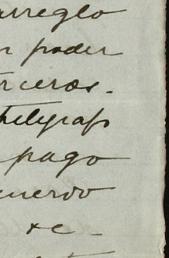 arreglo
poder
terceros.
telegrafo
pago
acuerdo
&c